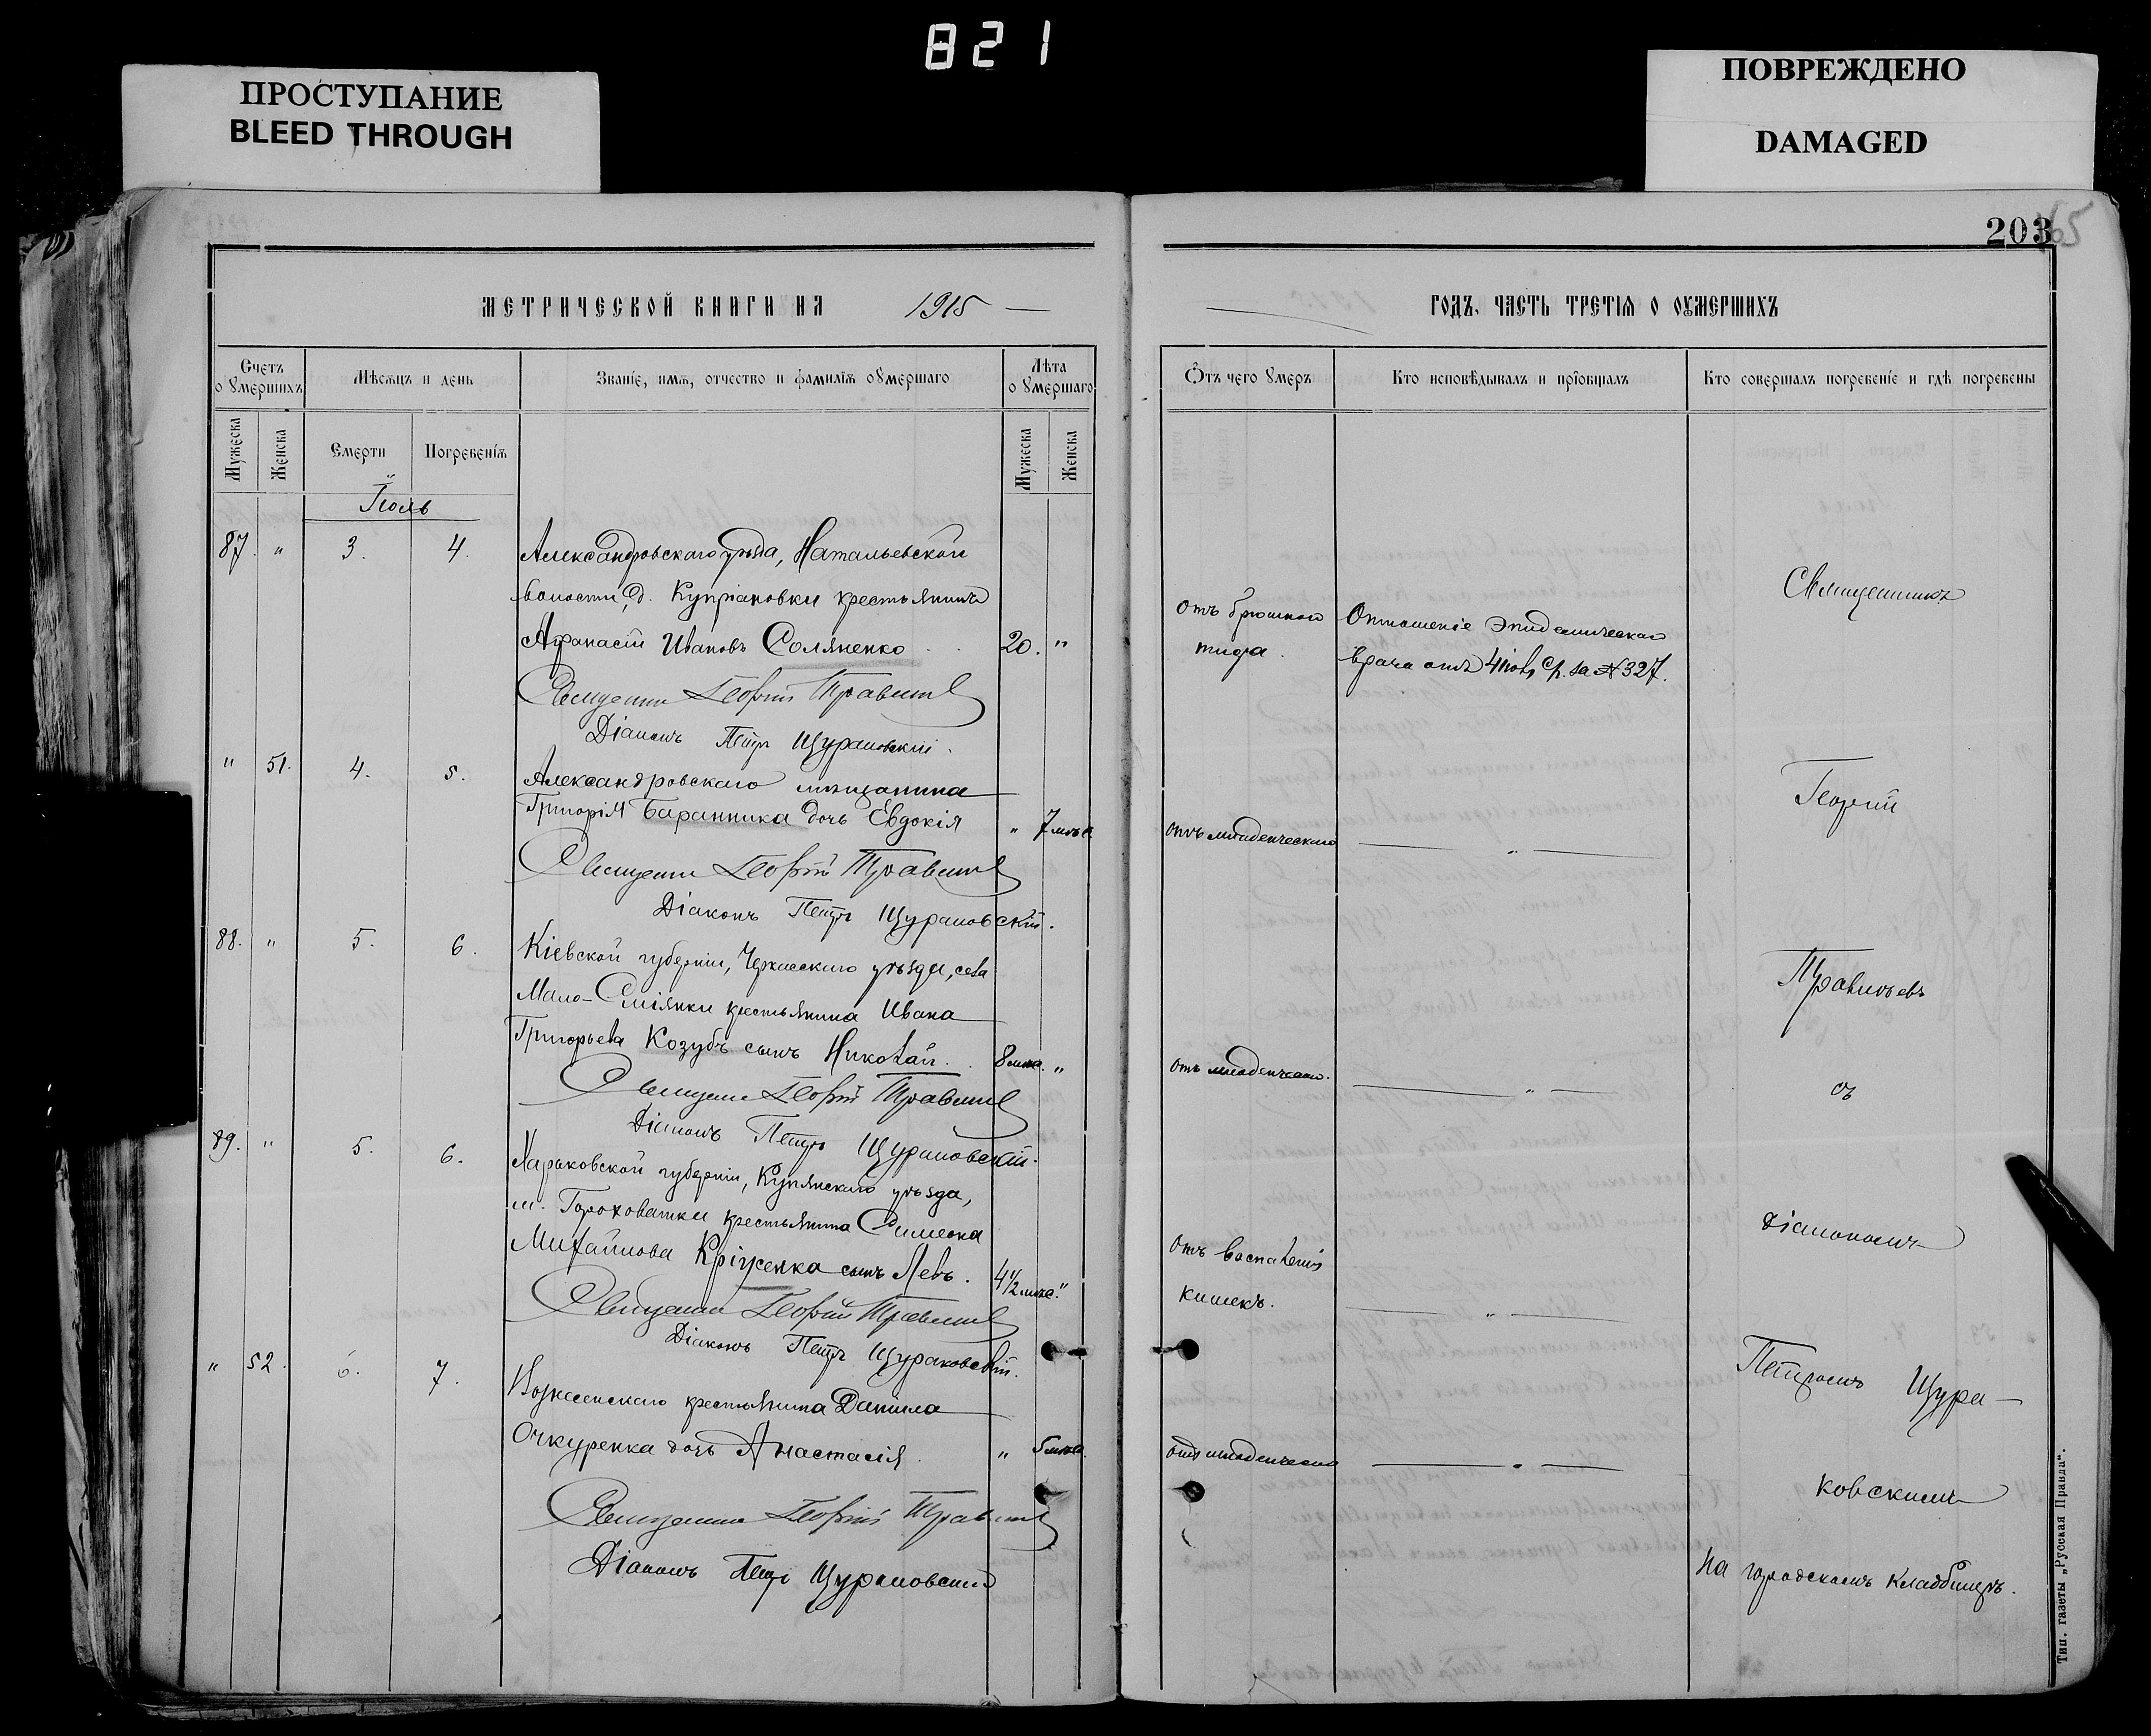 821
ПРОСТУПАНИЕ
BLEED THROUGH
ПОВРЕЖДЕНО
DAMAGED
203
165
МЕТРИЧЕСКОЙ КНИГИ НА 1915
ГОДЪ, ЧАСТЬ ТРЕТІѦ О ОУМЕРШИХЪ
Счетъ о ѹмершихъ
Мѣсѧцъ и день
Званіе, имѧ, отчество и фамиліѧ оумершаго
Лѣта оумершаго
Мужеска
Женска
Смерти
Погребеніѧ
Мужеска
Женска
Іюль
87. " 3. 4. Александровскаго уѣзда, Натальевской
волости, д. Купріановки крестьянинъ
Афанасій Ивановъ Соляненко 20. "
Священникъ Георгій Правиловъ
Діаконъ Петръ Щураковскій.
" 51. 4. 5. Александровскаго мѣщанина
Григорія Баранника дочь Евдокія " 7 мѣс.
Священникъ Георгій
Діаконъ Петръ Щураковскій.
88. " 5. 6. Кіевской губерніи, Черкасскаго уѣзда, села
Мало-Смілянки крестьянина Ивана
Григорьева Козубъ сынъ Николай. 8 мѣс. "
Священникъ Георгій
Діаконъ Петръ Щураковскій.
89. " 5. 6. Харьковской губерніи, Купянскаго уѣзда,
м. Гороховатки крестьянина Симеона
Михайлова сынъ Левъ. 4½ мѣс. "
Священникъ Георгій
Діаконъ Петръ Щураковскій.
" 52. 6. 7. Вознесенскаго крестьянина Даніила
Очкуренка дочь Анастасія. " 5 мѣс.
Священникъ Георгій
Діаконъ Петръ Щураковскій
Ѿтъ чего ѹмеръ
Кто исповѣдывалъ и пріобщалъ
Кто совершалъ погребеніе и гдѣ погребены
отъ брюшного
тифа.
Отношеніе Эпидемическаго
врача отъ 4 іюля с/г. за № 327.
Священникъ
отъ младенческаго
Георгій
отъ младенческаго.
съ
отъ воспаленія
кишекъ.
діакономъ
Петромъ Щура-
отъ младенческаго
ковскимъ
на городскомъ кладбищѣ.
Тип. газеты „Русская Правда“.